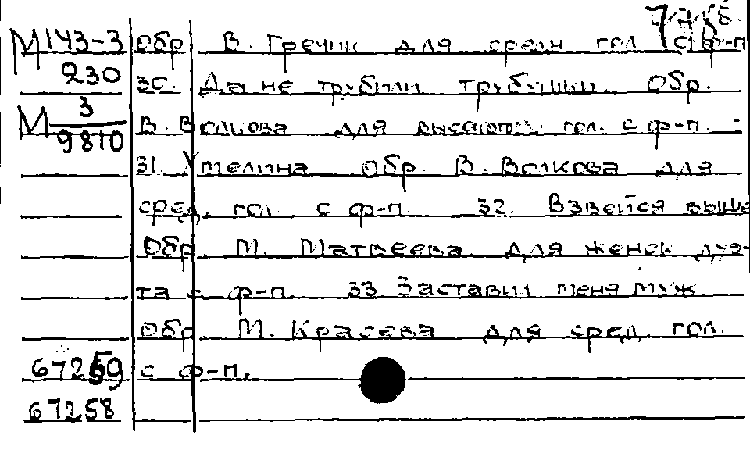 М143-3 Обр В. Гречик для средн гол с ф-п
230 30. Да не трубили трубушки Обр.
М 3/9810 В. Волкова для высокого гол. с ф-п. -
31. Утелина Обр. В. Волкова для
сред. гол с ф-п 32. Взвейся выше
Обр М. Матвеева для женск дуэ-
та с ф-п. 33 Заставил меня муж
обр М. Красева для сред. гол.
67259 с ф-п.
67258